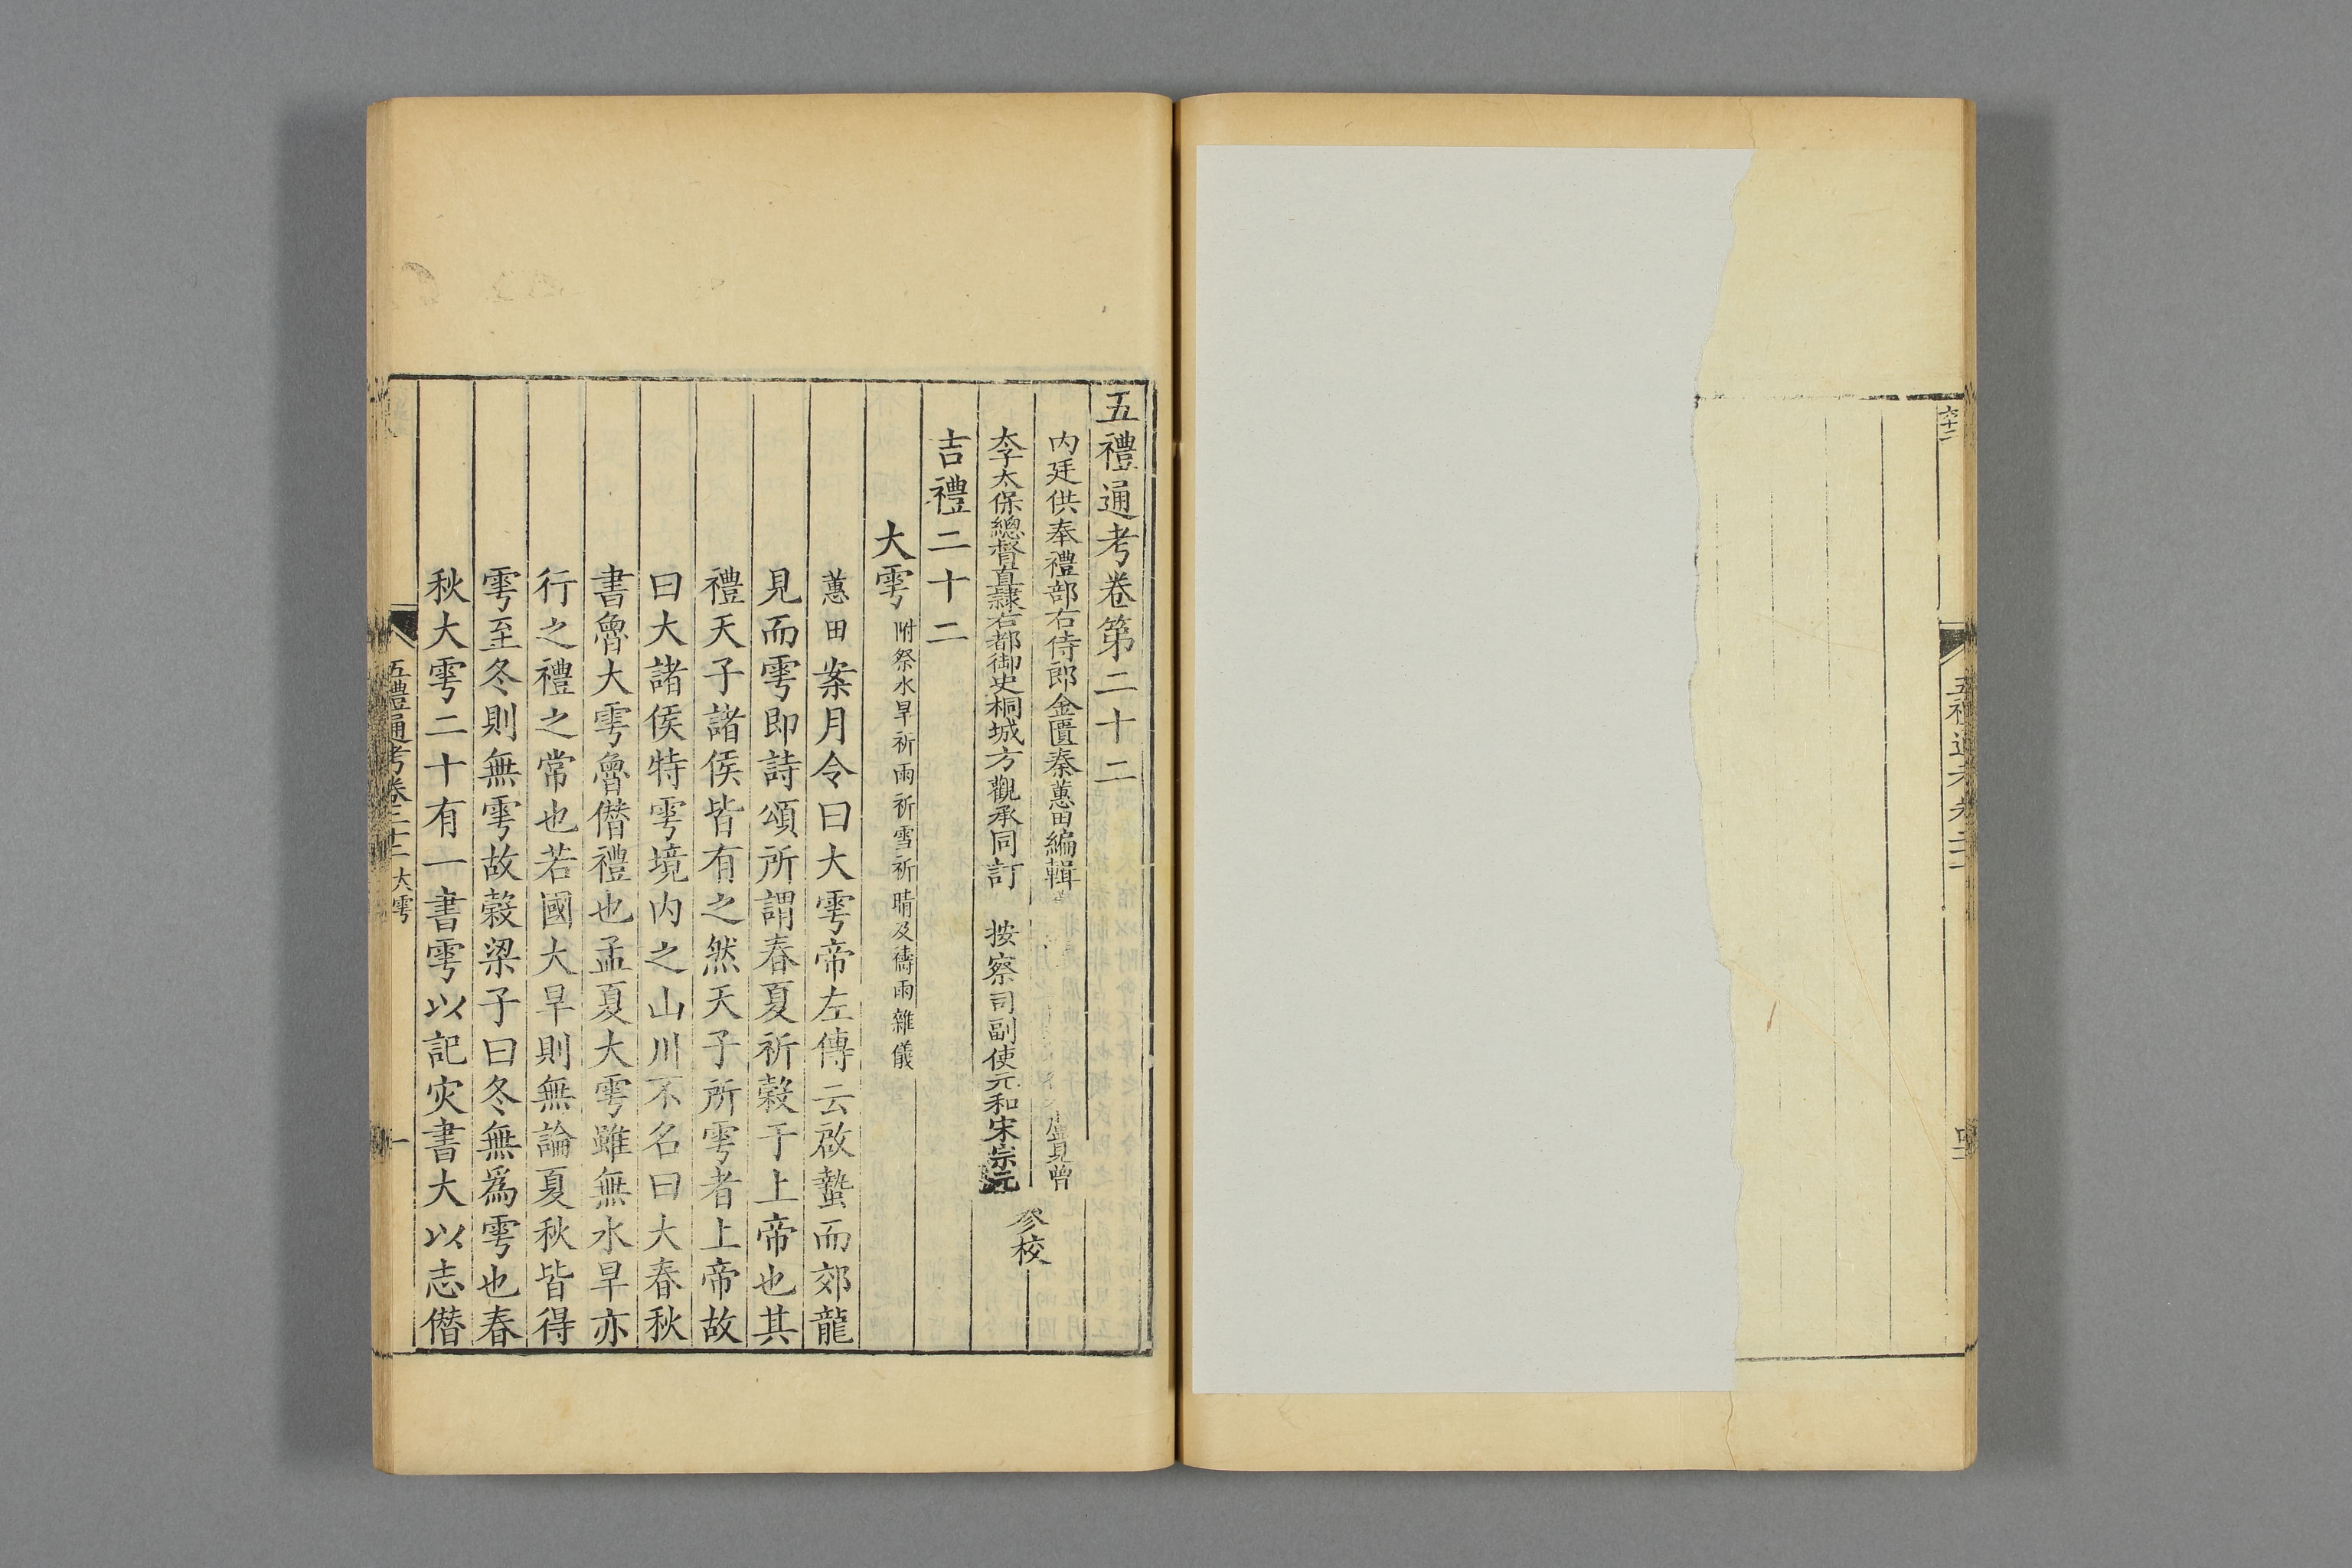 五禮通考卷第二十二
内廷供奉禮部右侍郎金匱秦蕙田編輯
盧見曾
太子太保總督直隷右都御史桐城方觀承同訂
按察司副使元和宋宗元
參校
吉禮二十二
大雩附祭水旱祈雨祈雪祈晴及禱雨雜儀
蕙田案月令曰大雩帝左傳云啟蟄而郊龍
見而雩即詩頌所謂春夏祈穀于上帝也其
禮天子諸侯皆有之然天子所雩者上帝故
曰大諸侯特雩境内之山川不名曰大春秋
書魯大雩魯僭禮也孟夏大雩雖無水旱亦
行之禮之常也若國大旱則無論夏秋皆得
雩至冬則無雩故穀梁子曰冬無爲雩也春
秋大雩二十有一書雩以記灾書大以志僭
五禮通考卷二十二 大雩 一